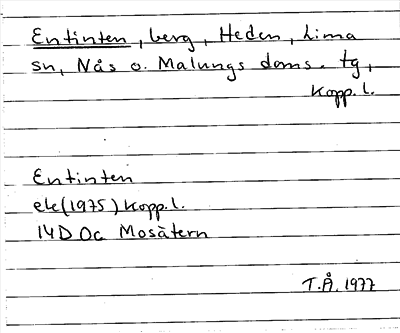 Entinten, berg, Heden, Lima
sn, Nås o. Malungs doms. tg,
Kopp. l.
Entinten
ek (1975) Kopp. l.
14D Oc Mosätern
T.Å. 1977